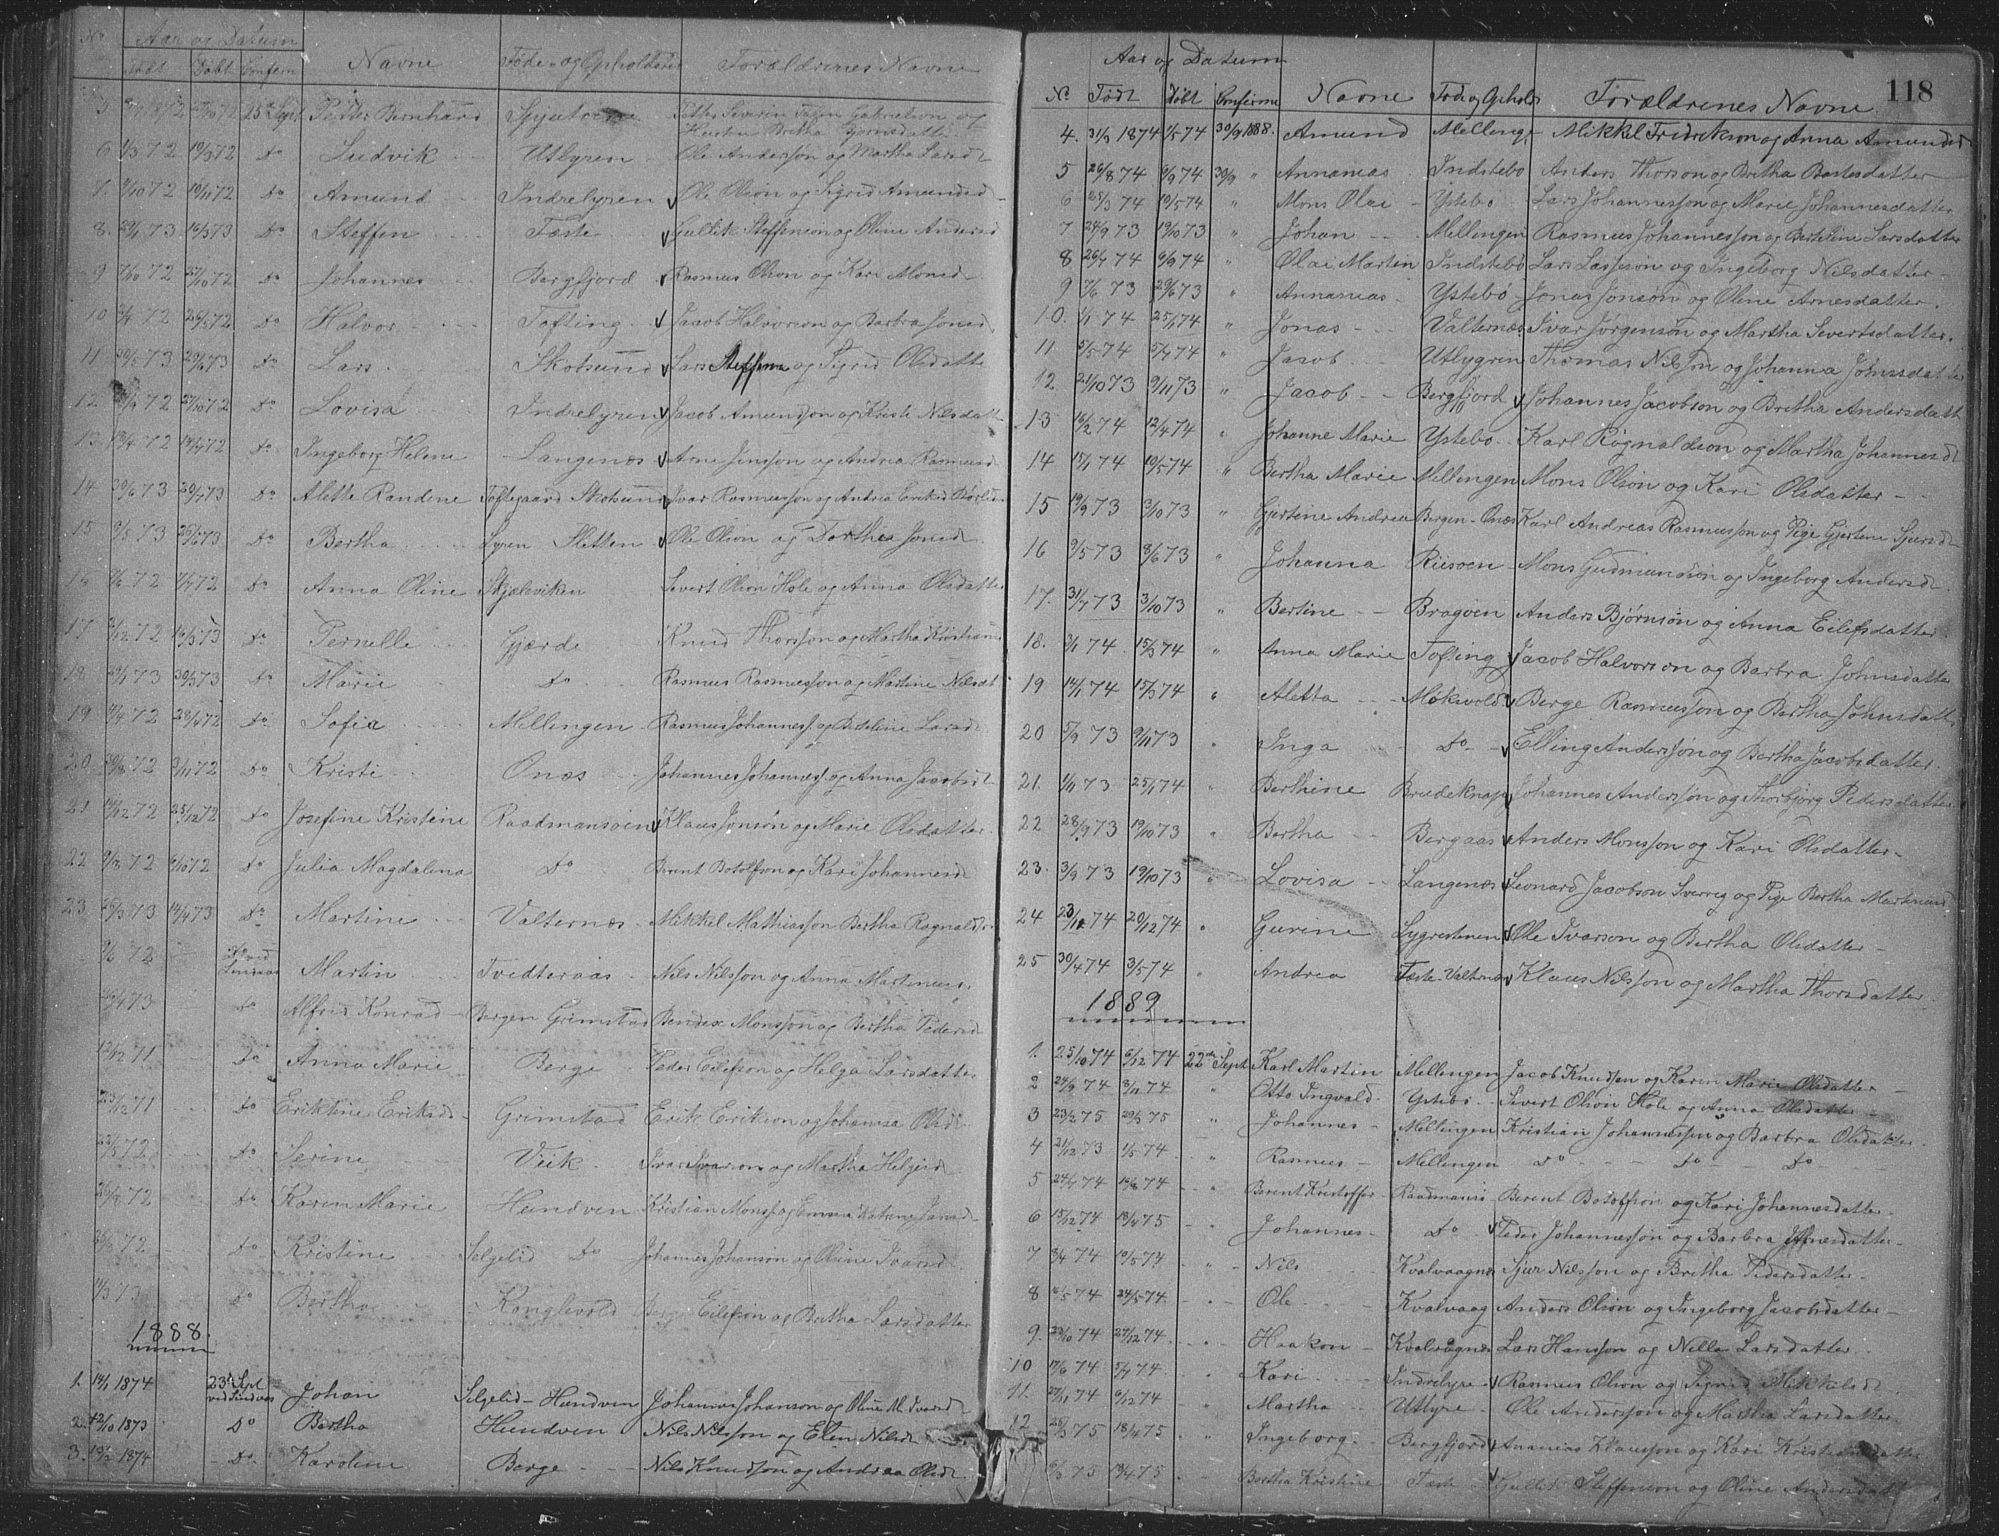 No Aar og Datum Navne Føde- og Opholdssted Forældrenes Navne
Født Døbt Confirm
5 27/10 72 25de Sept Petter Bernhard Petter Severin Gabrielson og
Bertha
6 1/3 72 19/3 72 Do Ludvik Utlyren Ole Anderssøn og Martha Larsd
7 9/10 72 10/11 72 Do Amund Indrelyren Ole Olson og Sigrid Amundsd
8 29/1 73 16/3 73 Do Steffen Fæste Gullik Steffenson og Oline Andersd
9 7/10 72 27/10 72 Do Johannes Bergfjord Rasmus Olson og Kari Monsd
10 72 26/5 72 Do Halvor Tofting Jacob Halvorson og Barbra Jonsd
11 30/5 73 29/6 73 Do Lars Skotsund Lars Steffenson og Sigrid Olsdatter
12 72 27/10 72 Do Lovisa Indrelyren Jacob Amundsøn og Kriste Nilsdatt
13 13/4 72 14/7 72 Do Ingeborg Helene Langenæs Arne Jensson og Andrea Rasmusd
14 30/6 73 20/7 73 Do Alette Randene Toftegaard Skotsund Ivar Rasmusson og Andrea Eriksd
15 9/5 73 25/6 73 Do Bertha Lyren Sletten Ole Olson og Dorthea Jonsd
16 72 7/7 72 Do Anna Oline Skjælsviken Severt Olson Hole og Anna Olsdatter
17 12 72 16/3 73 Do Pernelle Gjærde Knud Thorsson og Martha Kristians
18 29/1 73 30/3 73 Do Marie Do Rasmus Rasmusson og Martine Nilsdt
19 72 28/4 72 Do Sofia Mellingen Rasmus Johanness og Beteline Larsd
20 72 3/11 72 Do Kristi Onæs Johannes Johanness og Anna Jacobsd
21 14/12 72 25/12 72 Do Josefine Kristine Raadmansøen Klaus Jonsøn og Marie Olsdatter
22 9/8 72 6/10 72 Do Julia Magdalena Do Berent Botolfson og Kari Johannesd
23 25/3 73 14/4 73 Do Martine Valternæs Mikkel Mathiasson Bertha Rognalds
72 Do ved Lindaas Martin Tvedteraas Nils Nilsson og Anna Martinus
73 Do Alfrid Konrad Bergen Grimstad Bendix Monssøn og Bertha Pedersd
12/12 71 Do Anna Marie Berge Peder Eilefson og Helga Larsdatter
23/12 71 Do Eriktine Eriksd Grimstad Erik Erikson og Johanna Olsd
22/5 72 Do Serine Veik Ivar Ivarson og Martha Helgesd
26/9 72 Do Karen Marie Hundven Kristian Monss og Emma Katrine Jansd
72 Do Kristine Selgelid Do Johannes Johanson og Oline Ivarsd
14/3 73 Do Bertha Konglevold Eilefson og Bertha Larsdatter
1888.
1. 14/1 1874 23de Sept ved Lindaas Johan Selgelid - Hundven Johannes Johanson og Oline M. Ivarsd
2. 12/10 1873 Do Bertha Hundven Nils Nilsson og Elen Nilsd
3. 19/2 1874 Do Karoline Berge Nils Knudson og Andrea Olsd
118
Aar og Datum
No Født Døbt Confirme Navne Føde og Opholds Forældrenes Navne
4. 31/3 1874 1/5 74 30/9 1888. Amund Mellinge Mikkel Fredrikson og Anna Amundsd
5 26/8 74 6/9 74 30/9 " Annanias Indstebø Anders Thorson og Bretha Bertesdatter
6 25/3 74 10/5 74 " Mons Olai Ystebø Lars Johannesson og Marie Johannesdatter
7 24/9 73 19/10 73 " Johan Mellingen Rasmus Johannesson og Berteline Larsdatter
8 26/7 74 6/9 74 " Olai Marten Indstebø Lars Lasseson og Ingeborg Nilsdatter
9 7/6 73 29/6 73 " Annanias Ystebø Jonas Jonson og Oline Arnesdatter
10. 1/1 74 25/1 74 " Jonas Valternæs Ivar Jørgensøn og Martha Severtsdatter
11 5/5 74 5/7 74 " Jacob Utlygren Thomas Nilsøn og Johanna Johnsdatter
12. 21/10 73 9/11 73 " Jacob Bergfjord Johannes Jacobson og Bretha Andersdatt
13 16/2 74 12/4 74 " Johanne Marie Ystebø Karl Rognaldson og Martha Johannesdt
14 17/1 74 10/5 74 " Bertha Marie Mellingen Mons Olson og Kari Olsdatter
15 19/9 73 3/10 73 " Gjertine Andrea Bergen - Onæs Karl Andreas Rasmusson og Pige Gjertine Sjursdt
16 9/5 73 8/6 73 " Johanna Riisøen Mons Gudmundson og Ingeborg Andersd
17. 31/7 73 3/10 73 " Bertine Bragøen Anders Bjørnson og Anna Eilefsdatter
18. 2/1 74 15/3 74 " Anna Marie Tofting Jacob Halvorson og Barbra Johnsdatter
19 14/1 74 15/3 74 " Aletta Mokevold Berge Rasmusson og Bertha Johnsdatt
20 5/9 73 9/11 73 " Inga Do Elling Anderssøn og Bertha Jacobsdatter
21. 1/11 73 25/1 74 " Berthine Brudeknap Johannes Andersson og Thorbjørg Pedersdatter
22 28/9 73 19/10 73 " Bertha Bergaas Anders Monsson og Kari Olsdatter
23. 3/9 73 19/10 73 " Lovisa Langenæs Leonard Jacobson Sverrig og Pige Bertha Martinusd
24 23/11 74 20/12 74 " Gurine Lygrestenen Ole Ivarson og Bertha Olsdatter
25 30/4 74 3/5 74 " Andrea Fæste Valternæs Klaus Nilsson og Martha Thorsdatter
1889
1. 25/10 74 6/12 74 22de Sept Karl Martin Mellingen Jacob Knudsøn og Karen Marie Olsdatter
2 24/9 74 8/11 74 " Otto Ingvald Ystebø Severt Olson Hole og Anna Olsdatter
3 23/2 75 29/3 75 " Johannes Mellingen Kristian Johannesson og Barbra Olsdatter
4 21/12 73 1/5 74 " Rasmus Mellingen Do Do Do
5 24/7 74 74 " Berent Kristoffer Raadmansø Berent Botolfson og Kari Johannesdatter
6 15/12 74 18/4 75 " Johannes Do Peder Johannesson og Barbra Arnesdatter
7 3/4 74 10/5 74 " Nils Kvalvaagnes Sjur Nilsson og Bretha Pedersdatter
8 74 24/5 74 " Ole Kvalvaag Anders Olson og Ingeborg Jacobsdatter
9. 20/10 74 27/12 74 " Haakon Kvalvagnes Lars Hansson og Nille Larsdatter
10 17/6 74 5/7 74 " Kari Indrelyre Rasmus Olson og Sigrid Mikkelsd
11. 27/11 74 6/12 74 " Martha Utlyre Ole Andersson og Martha Larsdatter
12 25/3 75 18/4 75 " Ingeborg Bergfjord Ananias Klausson og Kari Kristensdatter
75 75 " Bertha Kristine Fæste Gullik Steffenson og Oline Andersdatter